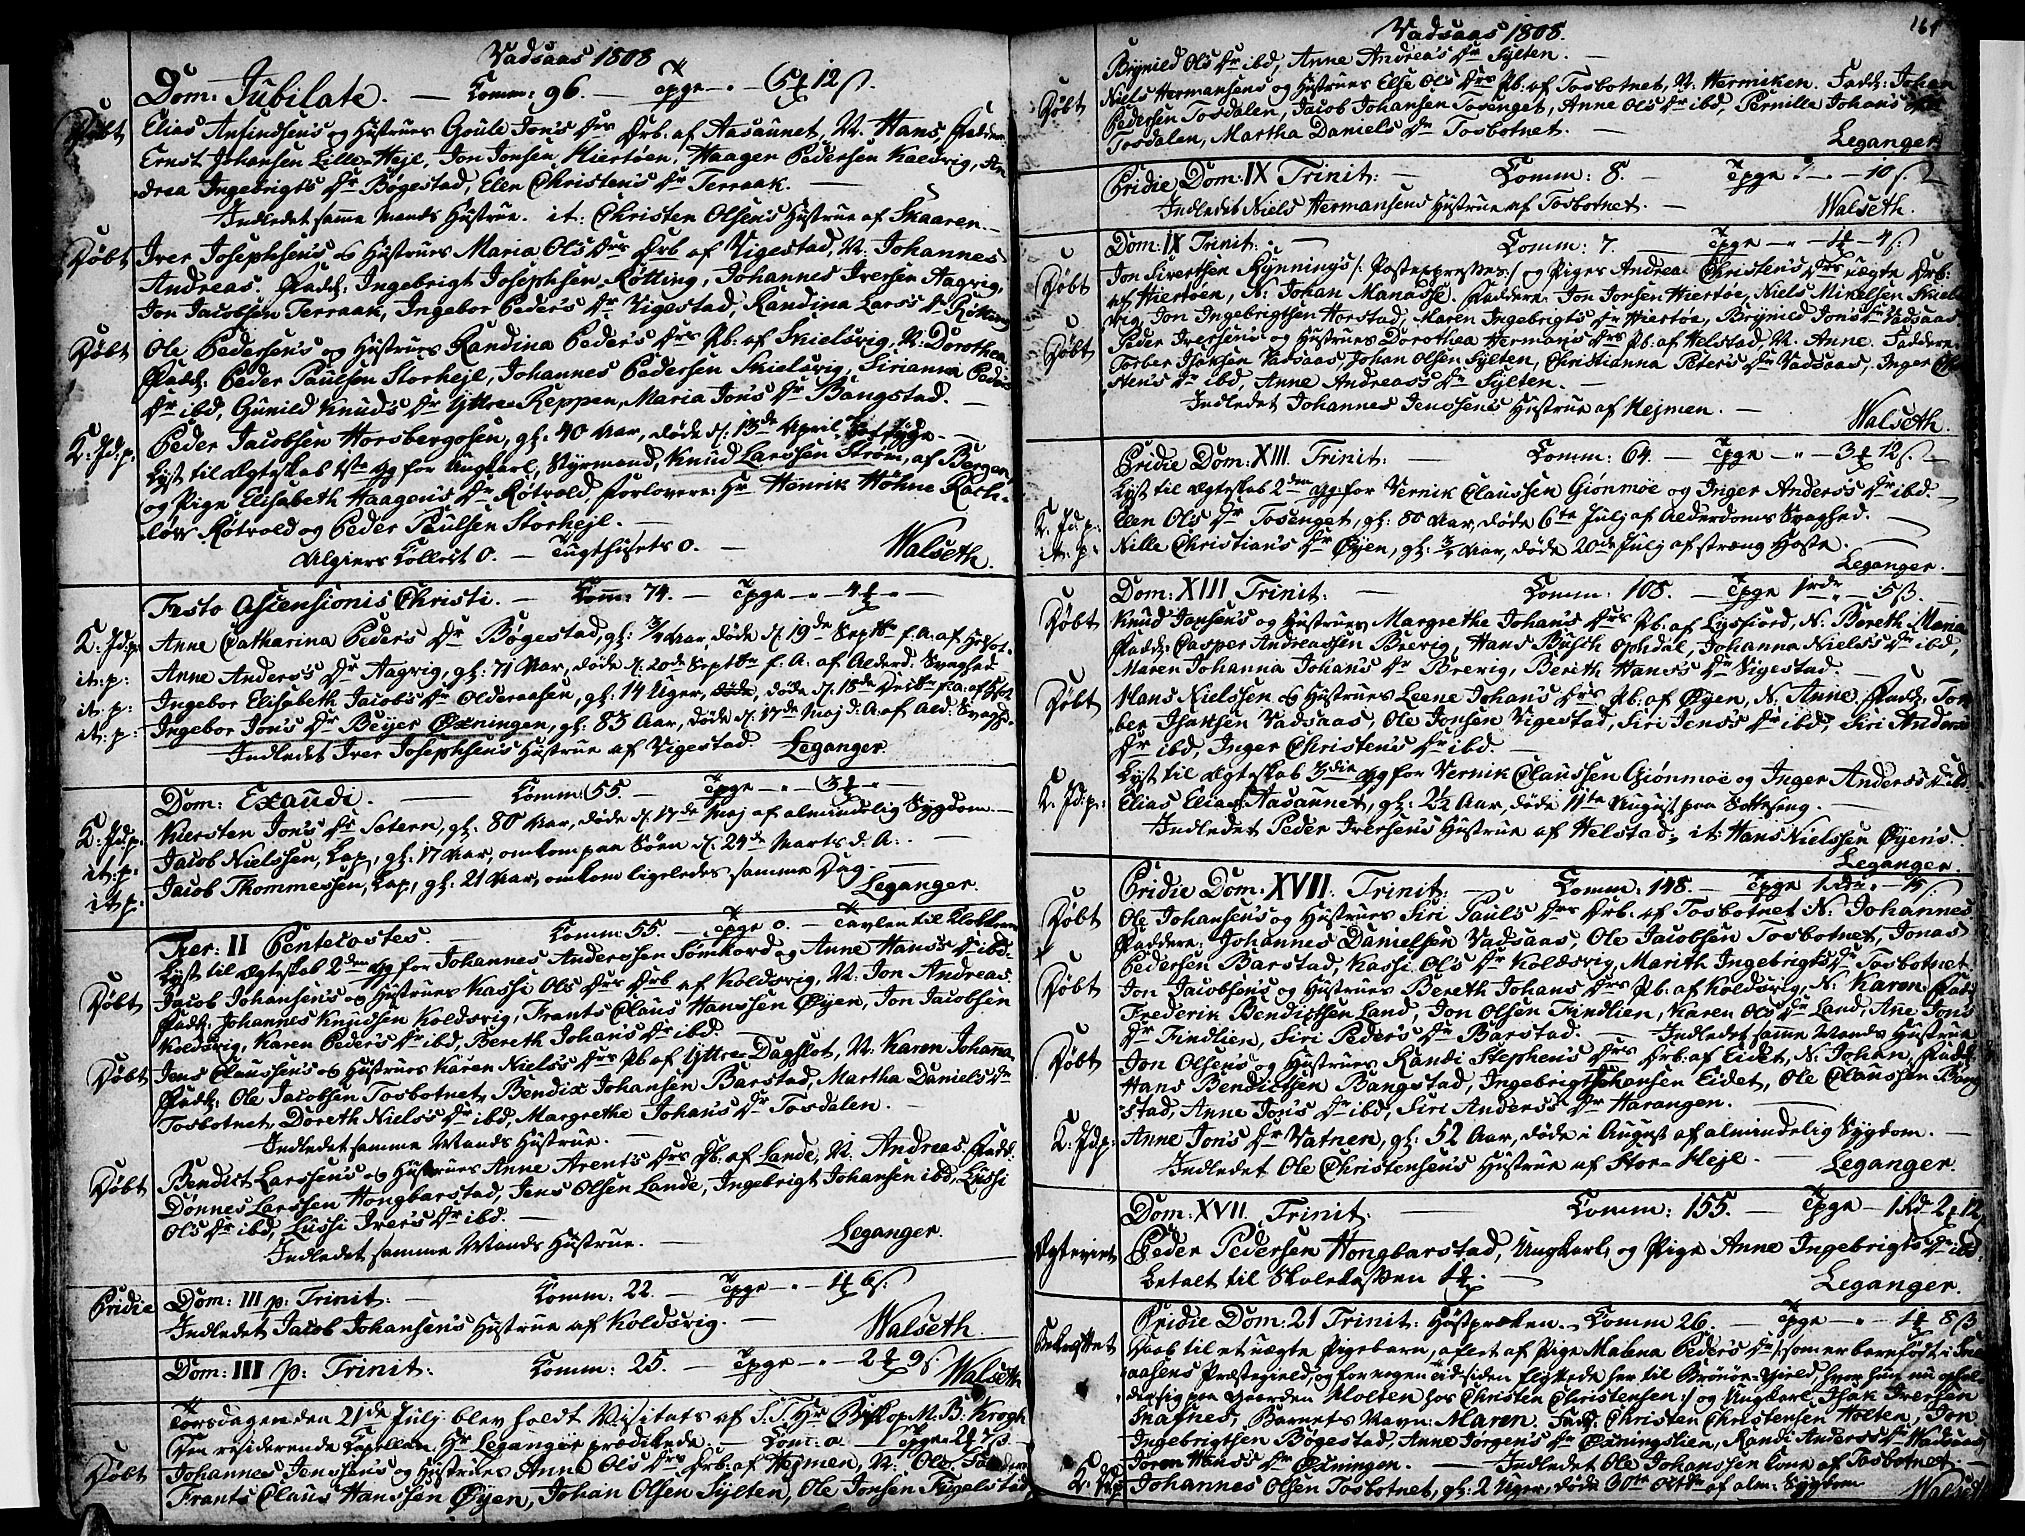 Vadsaas 1808
Dom: Jubilate. — Comm: 96. — Tpge — " — 5 ƶ 12 ß.
Døbt Elias Ansindsen's og Hustrues Goule Jon's Drs Drb: af Aasaunet, N: Hans, Faddere:
Ernst Johansen Lille-Hejl, Jon Jonsen Hiertøen, Haagen Pedersen Kaldvig, An
drea Ingebrigt's Dr Bøgestad, Elen Christen's Dr Terraak. —
Indledet samme Mands Hustrue. it: Christen Olsen's Hustrue af Skaaren. —
Døbt Iver Josephsen's og Hustrues Maria Ols Drs Drb af Vigestad, N: Johannes
Andreas. Fadd: Ingebrigt Josephsen Røtting, Johannes Iversen Aagvig,
Jon Jacobsen Terraak, Ingebor Peder's Dr Vigestad, Randina Lars's Dr
Døbt Ole Pedersen's og Hustrues Randina Peder's Drs Pb: af Skielsvig, N: Dorothea
Fadd: Peder Paulsen Storhejl, Johannes Pedersen Skielsvig, Sirianna Peders
Dr ibd, Gunild Knuds Dr Yttre Reppen, Maria Jon's Dr Bangstad. —
K: Jd: p: Peder Jacobsen Horsbergosen, gl: 40 Aar, døde d: 13de April
Lyst til Ægteskab 1ste Gg for Ungkarl, Styrmand, Knud Larssen Strøm, af Bergen
og Pige Elisabeth Haagen's Dr Røtvold, Forlovere: Hr Henrik Høhne Roth-
løv Røtvold og Peder Paulsen Storhejl. —
Algiers Collect 0. — Tugthusets 0. — Walseth.
Festo Ascensionis Christi. — Comm: 74. — Tpge — " — 4 ƶ " —
K: Jd: p: Anne Catharina Peder's Dr Bøgestad, gl: 3/4 Aar, døde d: 19de Septbr f. A. af
it: p: Anne Anders's Dr Aagvig, gl: 71 Aar, døde d: 20de Septbr f: A: af Alderd. Svaghed
it: p: Ingebor Elisabeth Jacob's Dr Olderaasen, gl: 14 Uger, døde d: 18de f. a. af
it: p: Ingebor Jon's Dr Bejer Øxningen, gl: 83 Aar, døde d: 17de Maj d: A: af Ald: Svagh:
Indledet Iver Josephsen's Hustrue af Vigestad. Leganger.
Dom: Exaudi. — Comm: 55 — Tpge — " — 3 ƶ " —
K: Jd: p: Kiersten Jon's Dr Setern, gl: 80 Aar, døde d: 17de Maj af almindelig Sygdom. —
it: p: Jacob Nielssen, Lap, gl: 17 Aar, omkom paa Søen d: 24de Marts d: A: —
it: p: Jacob Thommessen, Lap, gl: 21 Aar, omkom ligeledes samme Dag. — Leganger.
Fer: II Pentecostes. — Comm: 55. — Tpge 0. — Tavlen til Klokkeren
Lyst til Ægteskab 2den Gg for Johannes Anderssen Sømhord og Anne Hans's Dr ibd.
Døbt Jacob Johansen's og Hustrues Kassi Ols Drs Drb af Koldsvig, N: Jon Andreas.
Fadd: Johannes Knudsen Koldsvig, Frants Claus Hanssen Øyen, Jon Jacobsen
Koldsvig, Karen Peders Dr ibd, Bereth Johan's Dr ibd.
Døbt Jens Claussen's og Hustrues Karen Niels's Drs Pb af Yttre Dagslot, N: Karen Johanna,
Fadd: Ole Jacobsen Tosbotnet, Bendix Johansen Barstad, Martha Daniels Dr
Tosbotnet, Doreth Niels's Dr ibd, Margrethe Johan's Dr Tosdalen. —
Indledet samme Mands Hustrue. —
Døbt Bendict Larssen's og Hustrues Anne Arent's Drs Pb. af Lande, N. Andreas. Fadd:
Dønnes Larssen Hongbarstad, Jens Olsen Lande, Ingebrigt Johansen ibd, Lussi
Ols Dr ibd, Lussi Iver's Dr ibd. —
Indledet samme Mands Hustrue. — Leganger.
Pridie Dom: III p: Trinit: — Comm: 22. — Tpge — " — 1 ƶ 6 ß.
Indledet Jacob Johansen's Hustrue af Koldsvig. — Walseth
Dom: III p: Trinit: Comm: 25. — Tpge — " — 2 ƶ 9 ß. Walseth
Torsdagen den 21de Julj blev holdt Visitats af S. T. Hr Biskop M. B: Krogh
Den residerende Capellan Hr Leganger prædikede. — Com: 0 — Tpge
Døbt Johannes Jenssen's og Hustrues Anne Ols Drs Drb: af Hejmen, N: Ole, Faddere
Frants Claus Hanssen Øyen, Johan Olsen Sylten, Ole Jonsen Fugelstad
Vadsaas 1808. 161
Brynild Ols Dr ibd, Anne Andrea's Dr Sylten. —
Døbt Niels Hermansens og Hustrues Else Ols Drs Pb. af Tosbotnet, N. Hermiken. Fadd: Johan
Pedersen Tosdalen, Jacob Johansen Tosenget, Anne Ols Dr ibd, Pernille Johans Dr
Tosdalen, Martha Daniels Dr Tosbotnet. — Leganger.
Pridie Dom: IX Trinit: — Comm: 8. — Tpge — " — 10 ß.
Indledet Niels Hermansens Hustrue af Tosbotnet. — Walseth.
Dom: IX Trinit: — Comm: 7. — Tpge — " — 1 ƶ — 4 ß:
Døbt Jon Sivertsen Rynning's /: Postexpresses :/ og Piges Andrea Christen's Drs uægte Drb:
af Hiertøen, N: Johan Manasse. Faddere: Jon Jonsen Hiertøe, Niels Mikelsen Skiels
vig, Jon Ingebrigtsen Horstad, Maren Ingebrigts Dr Hiertøe, Brynild Jon's Dr Vadsaas.
Døbt Peder Iversens og Hustrues Dorothea Herman's Drs Pb. af Helstad, N. Anne. Faddere:
Torber Isaksen Vadsaas, Johan Olsen Sylten, Christianna Peter's Dr Vadsaas, Inger Chri
sten's Dr ibd, Anne Andreas's Dr Sylten. —
Indledet Johannes Jenssen's Hustrue af Hejmen. — Walseth.
Pridie Dom: XIII Trinit: — Comm: 64. — Tpge — " — 3 ƶ 12 ß —
Lyst til Ægteskab 2den Gg for Vernik Claussen Giønmøe og Inger Anders's Dr ibd.
K: Jd: p: Elen Ols Dr Tosenget, gl: 80 Aar, døde 6te Julj af Alderdoms Svaghed. —
it: p: Nille Christian's Dr Øyen, gl: 3/4 Aar, døde 20de Julj af stræng Hoste. — Leganger.
Dom: XIII Trinit: — Comm: 108. — Tpge 1 rdr — 5 ß. —
Døbt Knud Jansen's og Hustrues Margrethe Johan's Drs Pb. af Lysfiord, N. Bereth Maria
Fadd: Casper Andreassen Brevig, Hans Busch Ophdal, Johanna Niels's Dr ibd,
Maren Johanna Johan's Dr Brevig, Bereth Hans's Dr Vigestad. —
Døbt Hans Nielssen og Hustrues Leene Johan's Drs Pb. af Øyen, N: Anne. Fadd: Tor
ber Isaksen Vadsaas, Ole Jonsen Vigestad, Siri Jens's Dr ibd, Siri Anders's
Dr ibd, Inger Christen's Dr ibd. —
Lyst til Ægteskab 3die Gg for Vernik Claussen Giønmoe og Inger Anders's Dr ibd
K: Jd: p: Elias Elias Aasaunet, gl: 2½ Aar, døde 11te August paa Sotteseng. —
Indledet Peder Iversen's Hustrue af Helstad, it: Hans Nielssen Øyen's. Leganger.
Pridie Dom: XVII. Trinit: — Comm: 148. — Tpge 1 Rdr
Døbt Ole Johansen's og Hustrues Siri Pauls Drs Drb: af Tosbotnet N: Johannes
Faddere: Johannes Danielsen Vadsaas, Ole Jacobsen Tosbotnet, Jonas
Pedersen Barstad, Kassi Ols Dr Koldsvig, Marith Ingebrigts Dr Tosbotnet
Døbt Jon Jacobsens og Hustrues Bereth Johans Drs Pb. af Koldsvig, N: Karen Fadd:
Frederik Bendictsen Land, Jon Olsen Findlien, Karen Ols Dr Land, Ane Jons
Dr Findlien, Siri Peder's Dr Barstad. — Indledet samme Mands Hustrue
Døbt Jon Olsen's og Hustrues Randi Stephen's Drs Drb: af Eidet, N: Johan, Fadd:
Hans Bendictsen Bangstad, Ingebrigt Johansen Eidet, Ole Claussen Bang
stad, Anne Jon's Dr ibd, Siri Anders's Dr Harangen. —
K: Jd: p: Anne Jon's Dr Vatnen, gl: 52 Aar, døde i August af almindelig Sygdom. —
Indledet Ole Christensen's Hustrue af Stor-Hejl. — Leganger.
Dom: XVII. Trinit: Comm: 155. — Tpge — 1 Rd 2 ƶ 12
Ægteviet Peder Pedersen Hongbarstad, Ungkarl, og Pige Anne Ingebrigts Dr ibd
betalt til Skolekassen 1 ƶ. — Leganger.
Pridie Dom: 21 Trinit: Høstprøken. — Comm 26. — Tpge — " — 1 ƶ 8 ß
Bekræftet Daab til et uægte Pigebarn, aflet af Pige Malena Peders Dr /: som er barnfødt i
aasens Præstegield, og for nogen Tid siden flyttede her til Brønøe-Gield, hvor hun nu ophol
der sig paa Gaarden Holten hos Christen Christensen :/ og Ungkarl Isak Iversen
Skafnes, Barnets Navn: Maren. Fadd: Christen Christensen Holten, Jon
Ingebrigtsen Bøgestad, Anne Jørgen's Dr Øxningslien, Randi Anders's Dr Wadsaas,
Joren Hans's Dr Øxningen. — Indledet Ole Johanssen Kone af Tosbotnet. —
K: Jd: p: Johannes Olsen Tosbotnet, gl: 2 Uger, døde 30te Octbr af alm: Sygdom Walseth